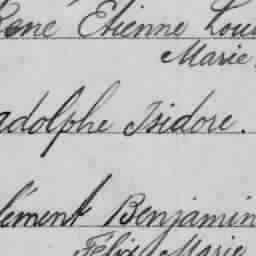 René Etienne Loui
Marie
adolphe Isidore.
lément Benjamin
Félix Marie